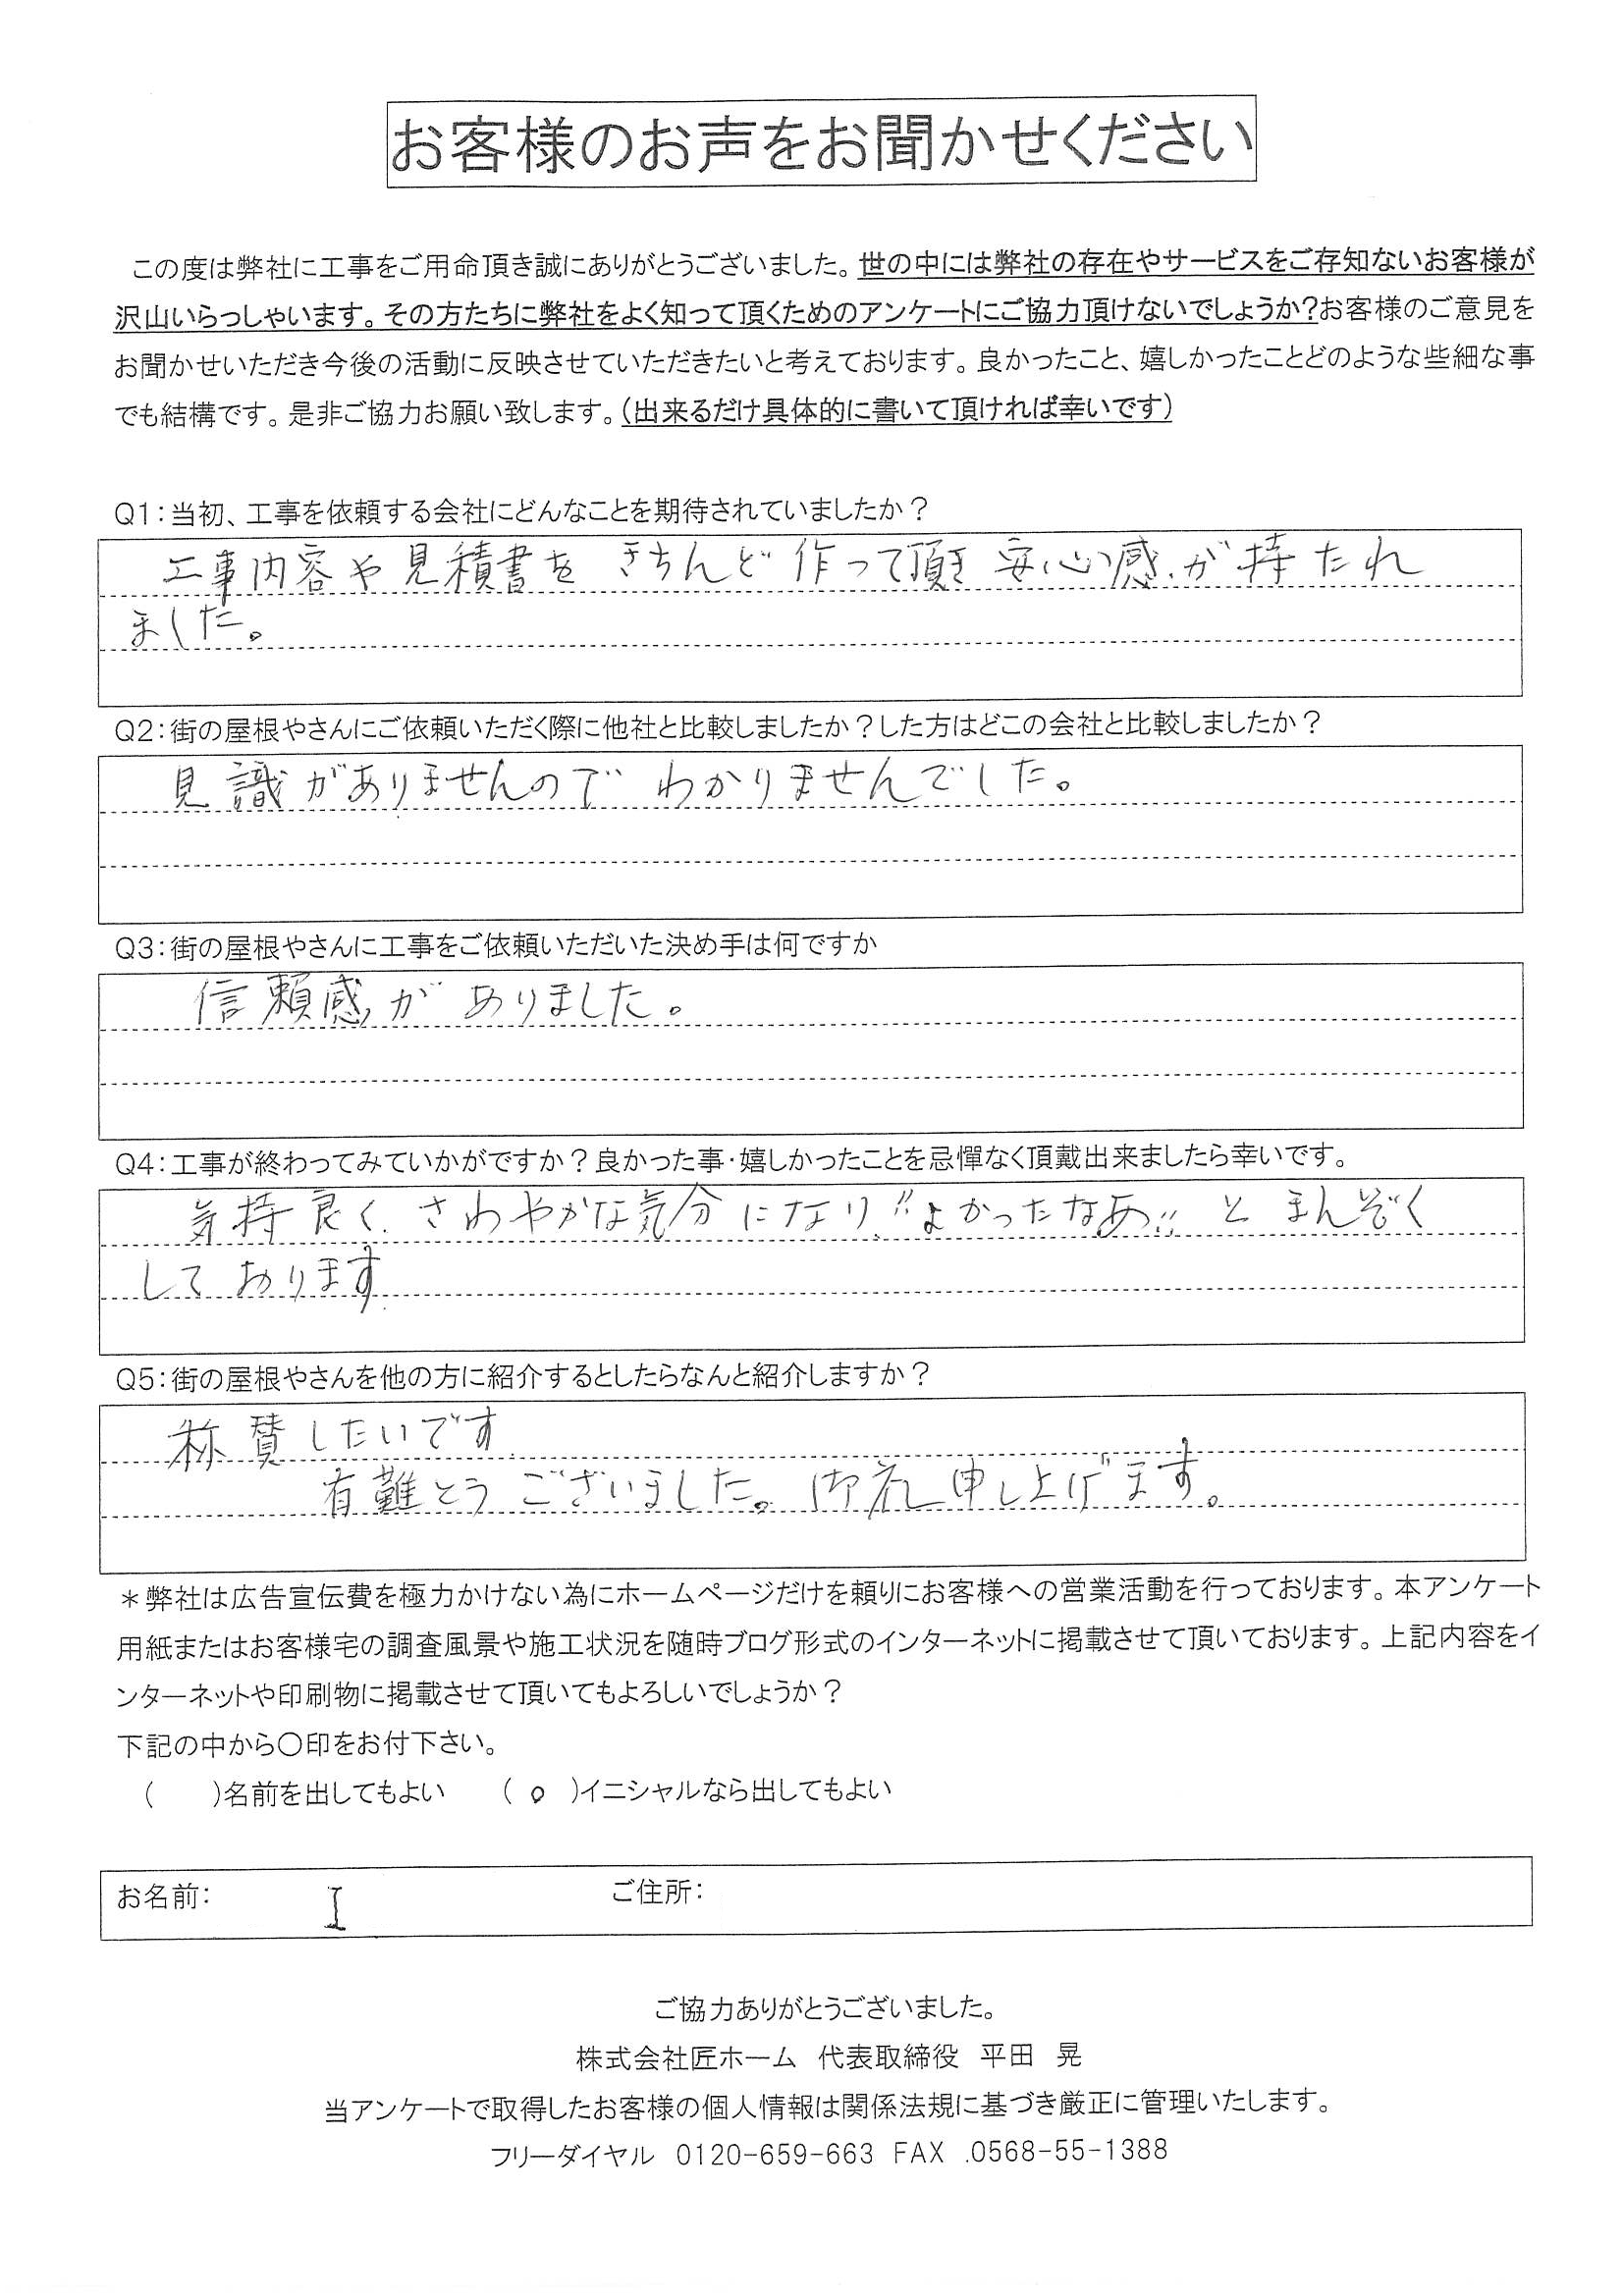 お客様のお声をお聞かせください
この度は弊社に工事をご用命頂き誠にありがとうございました。世の中には弊社の存在やサービスをご存知ないお客様が
沢山いらっしゃいます。その方たちに弊社をよく知って頂くためのアンケートにご協力頂けないでしょうか?お客様のご意見を
お聞かせいただき今後の活動に反映させていただきたいと考えております。良かったこと、嬉しかったことどのような些細な事
でも結構です。是非ご協力お願い致します。(出来るだけ具体的に書いて頂ければ幸いです)
Q1:当初、工事を依頼する会社にどんなことを期待されていましたか?
工事内容や見積書を きちんど 作って頂き 安心感が持たれ
ました。
Q2:街の屋根やさんにご依頼いただく際に他社と比較しましたか?した方はどこの会社と比較しましたか?
見識がありませんので わかりませんでした。
Q3:街の屋根やさんに工事をご依頼いただいた決め手は何ですか
信頼感が ありました。
Q4:工事が終わってみていかがですか?良かった事・嬉しかったことを忌憚なく頂戴出来ましたら幸いです。
気持良く、さわやかな気分になり〃よかったなあ〃と まんぞく
しております
Q5:街の屋根やさんを他の方に紹介するとしたらなんと紹介しますか?
称賛したいです
有難とうございました。御礼申し上げます。
*弊社は広告宣伝費を極力かけない為にホームページだけを頼りにお客様への営業活動を行っております。本アンケート
用紙またはお客様宅の調査風景や施工状況を随時ブログ形式のインターネットに掲載させて頂いております。上記内容をイ
ンターネットや印刷物に掲載させて頂いてもよろしいでしょうか?
下記の中から〇印をお付下さい。
(　　)名前を出してもよい　(○)イニシャルなら出してもよい
お名前: I ご住所:
ご協力ありがとうございました。
株式会社匠ホーム 代表取締役 平田 晃
当アンケートで取得したお客様の個人情報は関係法規に基づき厳正に管理いたします。
フリーダイヤル 0120-659-663 FAX .0568-55-1388